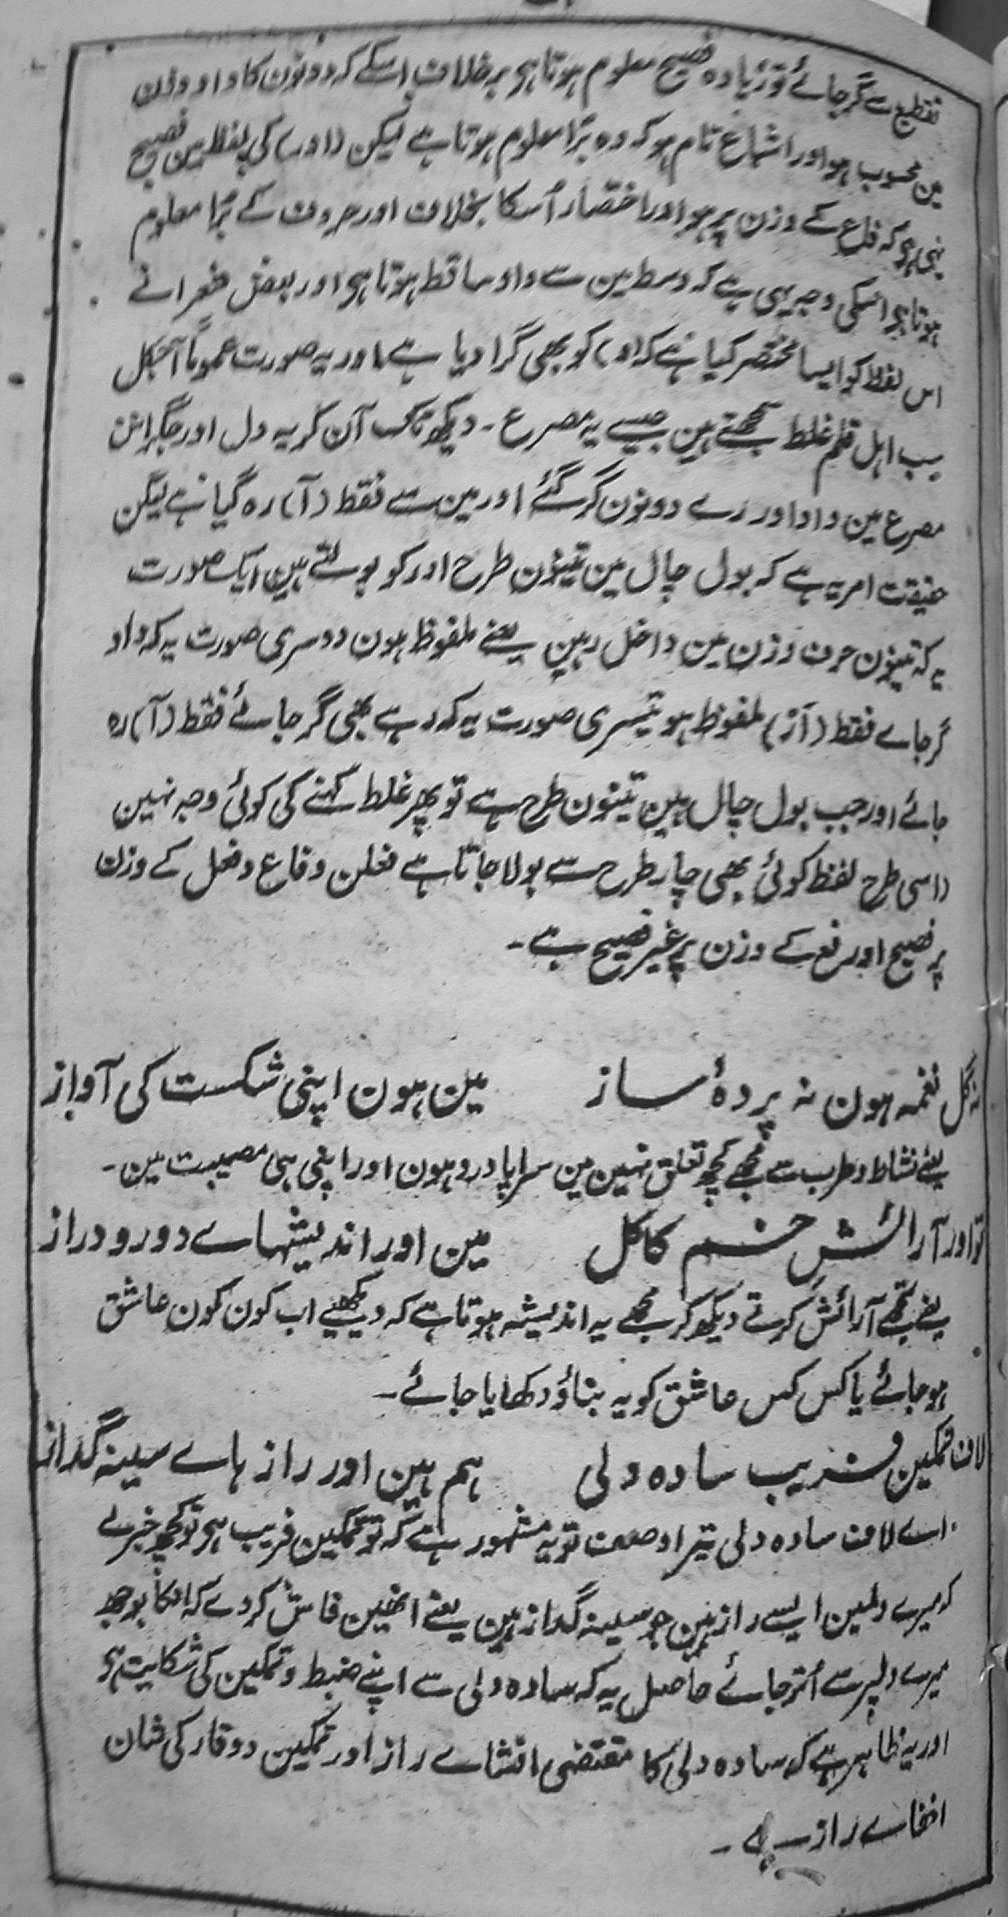 تقطیع سے گر جائے تو زیادہ فصیح معلوم ہوتا ہو بر خلاف اسکے کہ دونون کا واو وزن
مین محسوب ہو اور اشباع تام ہو کہ وہ برا معلوم ہوتا ہے لیکن (اور) کی لفظ مین فصیح
یہی ہو کہ فاع کے وزن پر ہو اور اختصار اُسکا بخلاف اور حروف کے برا معلوم
ہوتا ہو اسکی وجہ یہی ہے کہ وسط مین سے واو ساقط ہوتا ہو اور بعض شعرا نے
اس لفظ کو ایسا مختصر کیا ہے کہ (و) کو بھی گرا دیا ہے اور یہ صورت عموماً آجکل
سب اہل قلم غلط سمجھتے ہین جیسے یہ مصرع ۔ دیکھو تمک آن کر یہ دل اور جگر اس
مصرع مین واو اور رے دونون گر گئے اور مین سے فقط (آ) رہ گیا ہے لیکن
حقیقت امر یہ ہے کہ بول چال مین تینون طرح اور کو بولتے ہین ایک صورت
یہ کہ تینون حرف وزن مین داخل رہین یعنے ملفوظ ہون دوسری صورت یہ کہ واو
گر جاے فقط (اَر) ملفوظ ہو تیسری صورت یہ کہ رے بھی گر جائے فقط (آ) رہ
جائے اور جب بول چال مین تینون طرح ہے تو پھر غلط کہنے کی کوئی وجہ نہین
(اسی طرح لفظ کوئی بھی چار طرح سے بولا جاتا ہے فعلن و فاع و فعل کے وزن
پر فصیح اور فع کے وزن پر غیر فصیح ہے ۔
نہ گل نغمہ ہون نہ پردۂ ساز مین ہون اپنی شکست کی آواز
یعنے نشاط و طرب سے مجھے کچھ تعلق نہین مین سراپا درد ہون اور اپنی ہی مصیبت مین ۔
تو اور آرائش خم کاکل مین اور اندیشہاے دور و دراز
یعنے تجھے آرائش کرتے دیکھ کر مجھے یہ اندیشہ ہوتا ہے کہ دیکھیے اب کون کون عاشق
ہو جائے یا کس کس عاشق کو یہ بناؤ دکھایا جائے ۔
لاف تمکین فریب سادہ دلی ہم ہین اور راز ہاے سینہ گداز
اے لاف سادہ دلی تیرا وصف تو یہ مشہور ہے کہ تو تمکین فریب ہو تو کچھ خبر لے
کہ میرے دلمین ایسے راز ہین جو سینہ گداز ہین یعنے انھین فاش کر دے کہ انکا بوجھ
میرے دلپر سے اُتر جائے حاصل یہ کہ سادہ دلی سے اپنے ضبط و تمکین کی شکایت ہو
اور یہ ظاہر ہے کہ سادہ دلی کا مقتضی افشاے راز اور تمکین و وقار کی شان
اخفاے راز ہے ۔